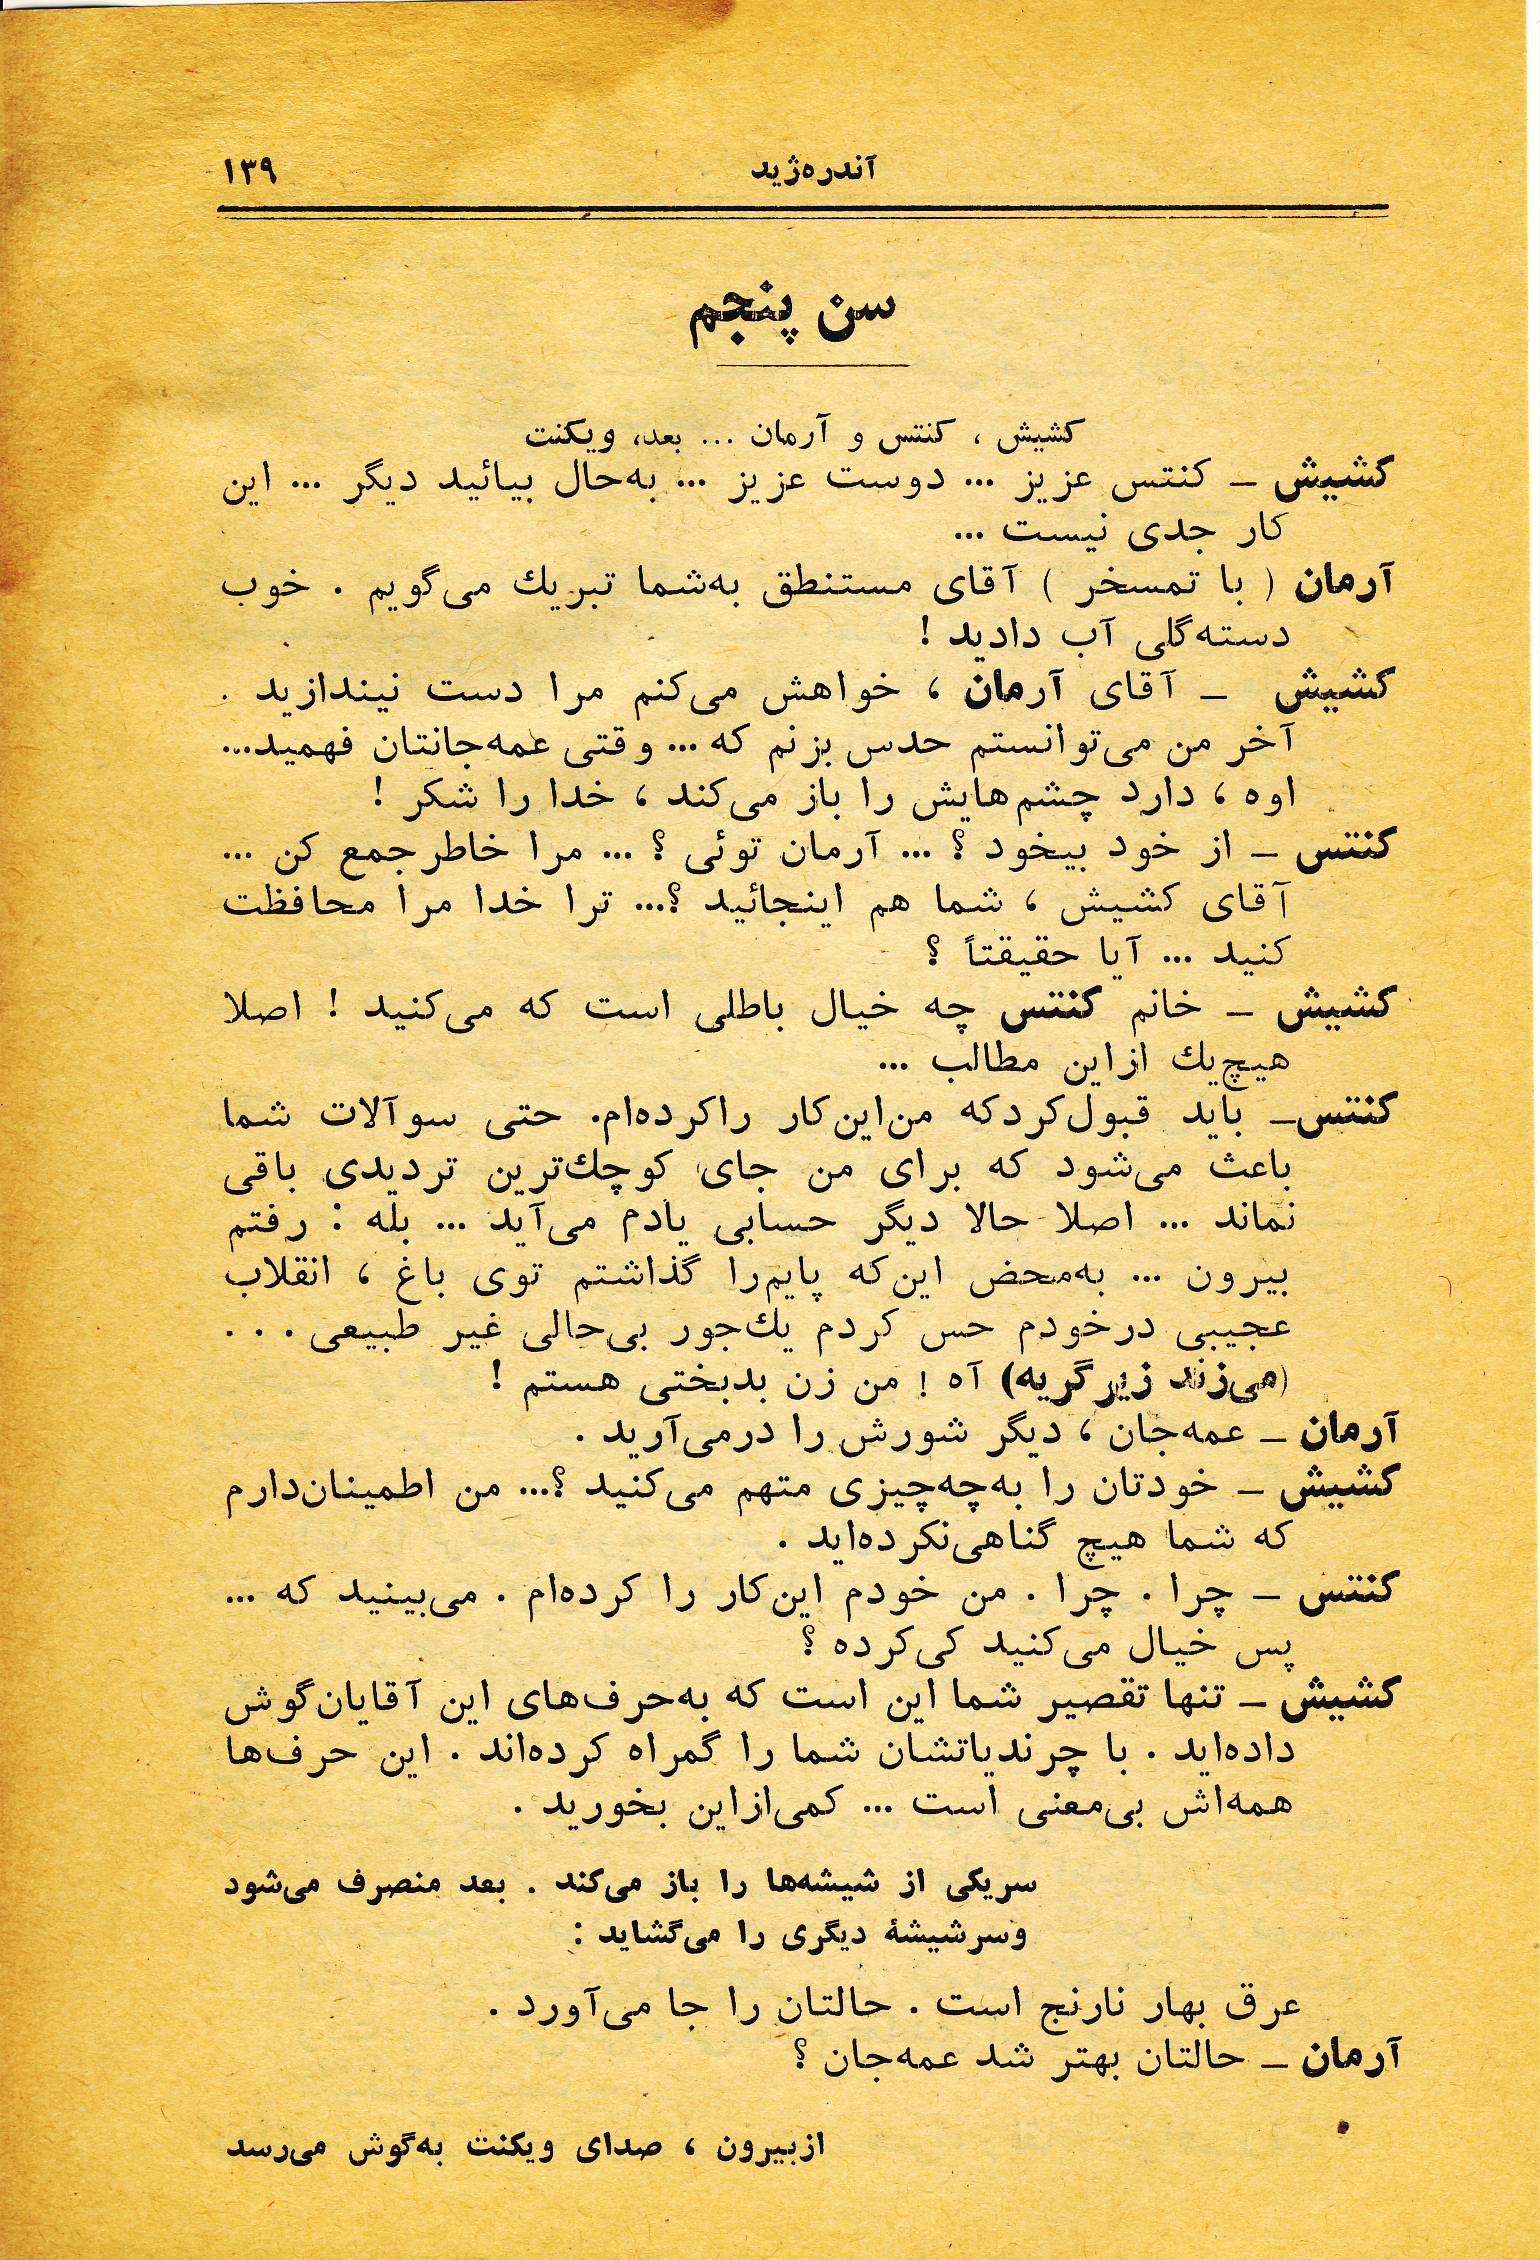 آندره‌ژید
۱۳۹
سن پنجم
کشیش ، کنتس و آرمان ... بعد، ویکنت
کشیش ـ کنتس عزیز ... دوست عزیز ... به‌حال بیائید دیگر ... این
کار جدی نیست ...
آرمان ( با تمسخر ) آقای مستنطق به‌شما تبریك می‌گویم . خوب
دسته‌گلی آب دادید !
کشیش ـ آقای آرمان ، خواهش می‌کنم مرا دست نیندازید .
آخر من می‌توانستم حدس بزنم که ... وقتی عمه‌جانتان فهمید...
اوه ، دارد چشم‌هایش را باز می‌کند ، خدا را شکر !
کنتس ـ از خود بیخود ؟ ... آرمان توئی ؟ ... مرا خاطرجمع کن ...
آقای کشیش ، شما هم اینجائید ؟... ترا خدا مرا محافظت
کنید ... آیا حقیقتاً ؟
کشیش ـ خانم کنتس چه خیال باطلی است که می‌کنید ! اصلا
هیچ‌یك ازاین مطالب ...
کنتس ـ باید قبول‌کردکه من‌این‌کار راکرده‌ام. حتی سوآلات شما
باعث می‌شود که برای من جای کوچك‌ترین تردیدی باقی
نماند ... اصلا حالا دیگر حسابی یادم می‌آید ... بله : رفتم
بیرون ... به‌محض این‌که پایم‌را گذاشتم توی باغ ، انقلاب
عجیبی درخودم حس کردم یك‌جور بی‌حالی غیر طبیعی . . .
(می‌زند زیر گریه) آه ! من زن بدبختی هستم !
آرمان ـ عمه‌جان ، دیگر شورش را درمی‌آرید .
کشیش ـ خودتان را به‌چه‌چیزی متهم می‌کنید ؟... من اطمینان‌دارم
که شما هیچ گناهی‌نکرده‌اید .
کنتس ـ چرا . چرا . من خودم این‌کار را کرده‌ام . می‌بینید که ...
پس خیال می‌کنید کی‌کرده ؟
کشیش ـ تنها تقصیر شما این است که به‌حرف‌های این آقایان‌گوش
داده‌اید . با چرندیاتشان شما را گمراه کرده‌اند . این حرف‌ها
همه‌اش بی‌معنی است ... کمی‌ازاین بخورید .
سریکی از شیشه‌ها را باز می‌کند . بعد منصرف می‌شود
وسرشیشهٔ دیگری را می‌گشاید :
عرق بهار نارنج است . حالتان را جا می‌آورد .
آرمان ـ حالتان بهتر شد عمه‌جان ؟
ازبیرون ، صدای ویکنت به‌گوش می‌رسد